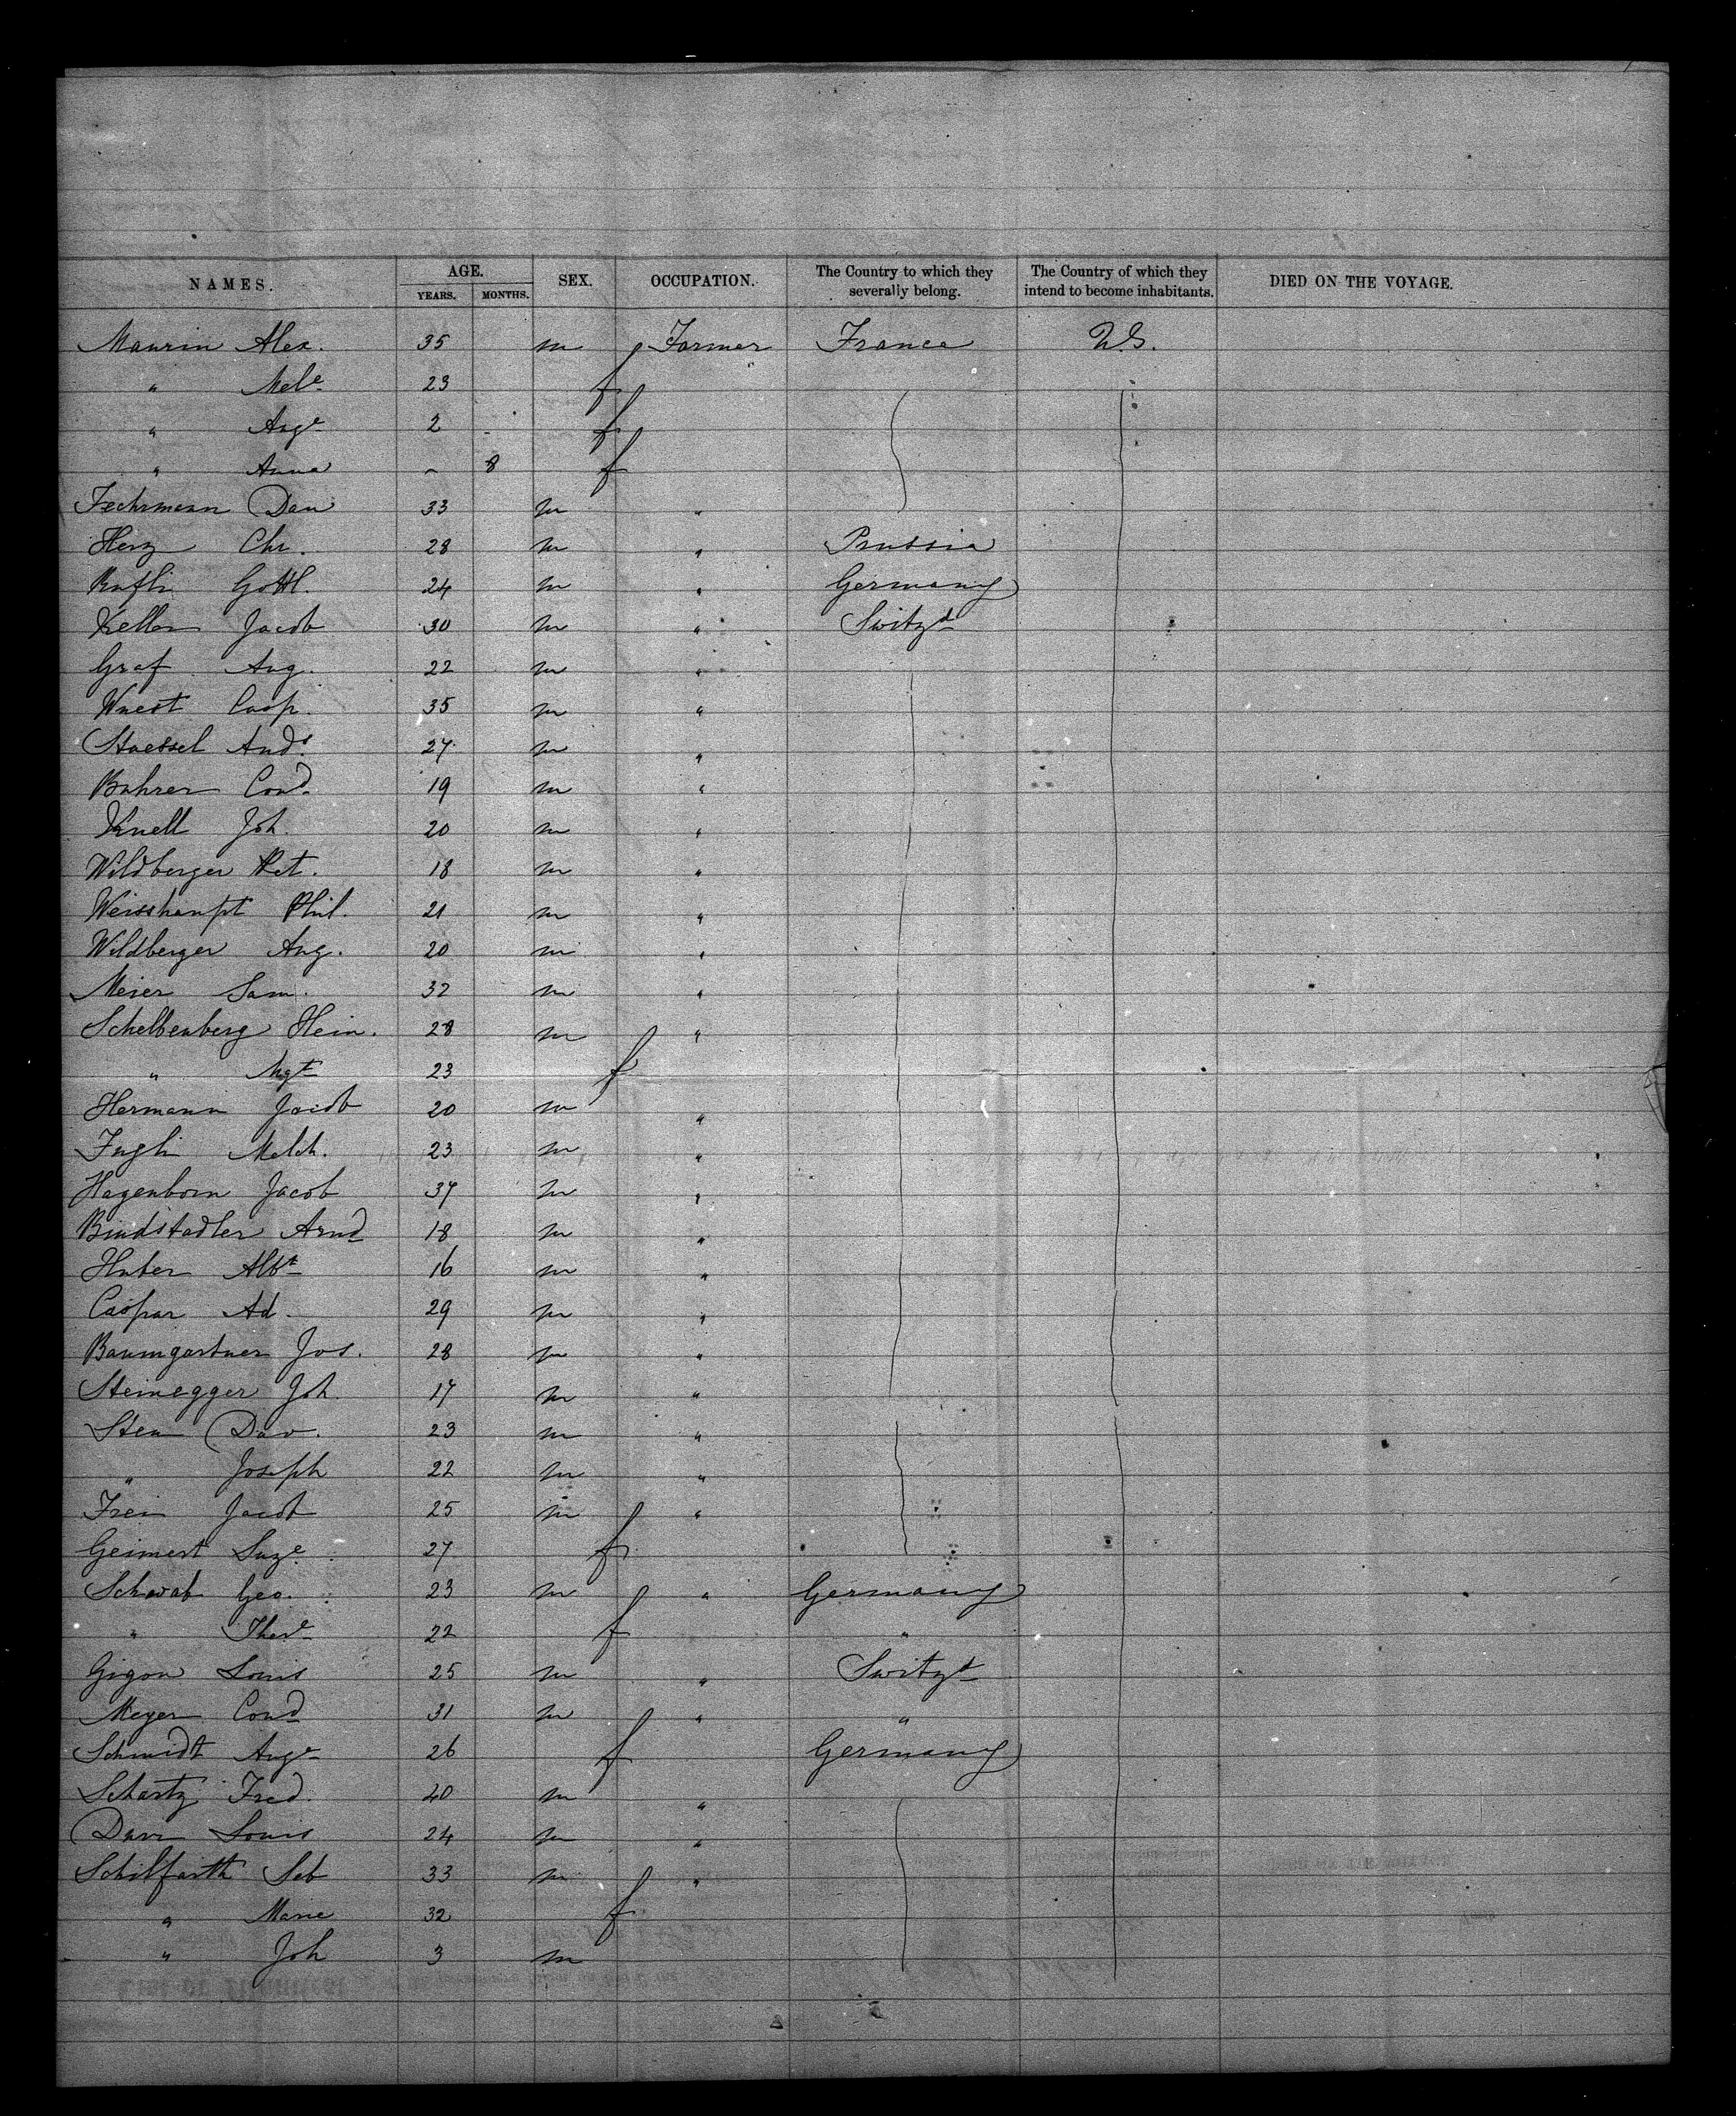 NAMES. AGE. SEX. OCCUPATION. The Country to which they severally belong. The Country of which they intend to become inhabitants. DIED ON THE VOYAGE.
YEARS. MONTHS.
Maurin Alex. 35 m Farmer France U.S.
" Mele 23 f
" Auge 2 f
" Anna - 8 f
Fechrmann Dan 33 m "
Herz Chr. 28 m " Prussia
Rufli Gottl. 24 m " Germany
Keller Jacob 30 m " Switzd
Graf Aug. 22 m "
Wuest Casp. 35 m "
Staessel Ands 27 m "
Buhrer Cond 19 m "
Knell Joh. 20 m "
Wildberger Pet. 18 m "
Weisshaupt Phil. 21 m "
Wildberger Aug. 20 m "
Meier Sam. 32 m "
Schellenberg Hein. 28 m "
" Mgt 23 f
Hermann Jacob 20 m "
Fugli Melch. 23 m "
Hagenborn Jacob 37 m "
Bindstadler Arnd 18 m "
Huber Albt 16 m "
Caspar Ad. 29 m "
Baumgartner Jos. 28 m "
Steinegger Joh. 17 m "
Stein Dav. 23 m "
" Joseph 22 m "
Frei Jacob 25 m "
Geimert Suze 27 f
Schwab Geo. 23 m " Germany
" There 22 f "
Gigon Louis 25 m " Switzd
Meyer Cond 31 m " "
Schmidt Auge 26 f Germany
Schartz Fred. 40 m "
Davi Louis 24 m "
Schilfarth Seb 33 m "
" Marie 32 f
" Joh 3 m